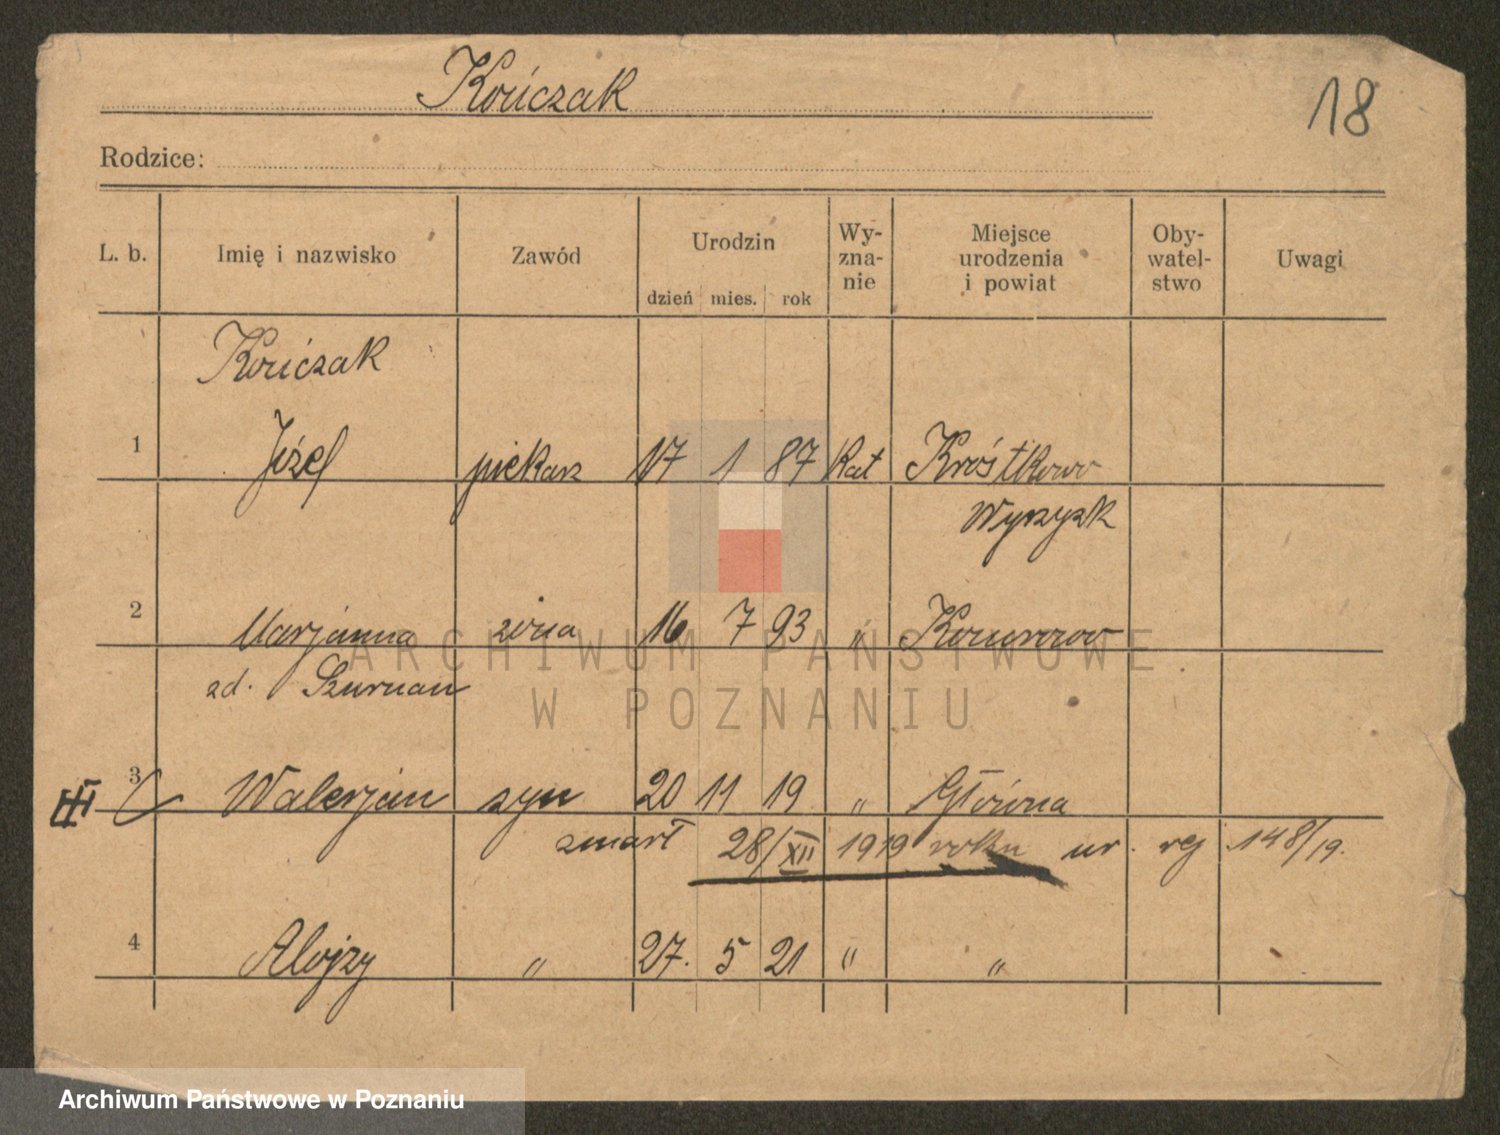 Kończak
18
Rodzice:
L. b. Imię i nazwisko Zawód Urodzin dzień mies. rok Wy-znanie Miejsce urodzenia i powiat Oby-watel-stwo Uwagi
Kończak
1 Józef piekarz 17 1 87 Kat Krostkowo
Wyrzysk
2 Marjanna żona 16 7 93 "
zd. Szurman
3 Walerjan syn 20 11 19 " Główna
zmarł 28/XII 1919 roku nr. rej 148/19.
4 Alojzy " 27. 5 21 " "
ARCHIWUM PAŃSTWOWE
W POZNANIU
Archiwum Państwowe w Poznaniu